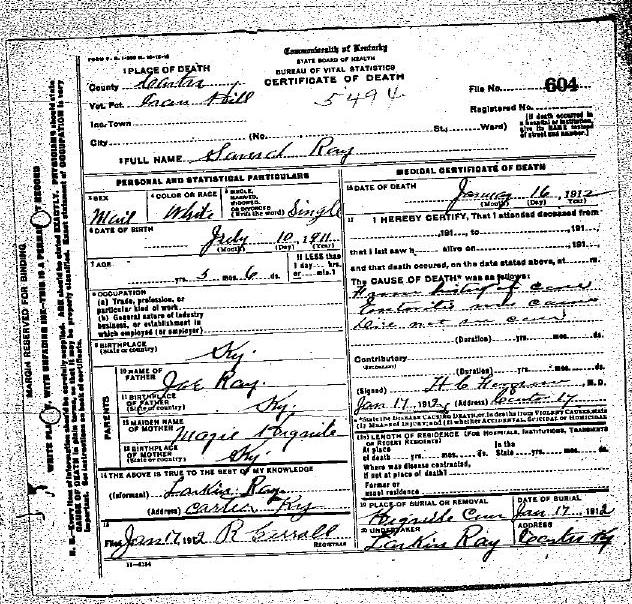 FORM V. S. 1-
Commonwealth of Kentucky
STATE BOARD OF HEALTH
BUREAU OF VITAL STATISTICS
CERTIFICATE OF DEATH
1 PLACE OF DEATH
County Carter
Vot. Pct.
Inc. Town
City (No. St., Ward)
5494
File No. 604
Registered No.
[If death occurred in a hospital or institution, give its NAME instead of street and number.]
2 FULL NAME Ray
PERSONAL AND STATISTICAL PARTICULARS
3 SEX Mail
4 COLOR OR RACE White
5 SINGLE, MARRIED, WIDOWED, OR DIVORCED (Write the word) Single
6 DATE OF BIRTH July 10, 1911
(Month) (Day) (Year)
7 AGE yrs. 5 mos. 6 ds.
If LESS than 1 day hrs. or min.?
8 OCCUPATION
(a) Trade, profession, or particular kind of work
(b) General nature of industry business, or establishment in which employed (or employer)
9 BIRTHPLACE (State or country) Ky.
PARENTS
10 NAME OF FATHER Joe Ray.
11 BIRTHPLACE OF FATHER (State or country) Ky.
12 MAIDEN NAME OF MOTHER Magie
13 BIRTHPLACE OF MOTHER (State or country) Ky
14 THE ABOVE IS TRUE TO THE BEST OF MY KNOWLEDGE
(Informant) Larkin Ray
(Address) Carter Ky
15
Filed Jan 17 1912 R REGISTRAR
11-6184
MEDICAL CERTIFICATE OF DEATH
16 DATE OF DEATH January 16, 1912
(Month) (Day) (Year)
17 I HEREBY CERTIFY, That I attended deceased from
191 to 191
that I last saw h alive on 191
and that death occured, on the date stated above, at m.
The CAUSE OF DEATH* was as follows:
(Duration) yrs. mos. ds.
Contributory
(Duration) yrs. mos. ds.
(Signed) H. C. M. D.
Jan 17, 1912 (Address) Carter Ky
*State the DISEASE CAUSING DEATH, or, in deaths from VIOLENT CAUSES, state (1) MEANS OF INJURY; and (2) whether ACCIDENTAL, SUICIDAL or HOMICIDAL
18 LENGTH OF RESIDENCE (FOR HOSPITALS, INSTITUTIONS, TRANSIENTS OR RECENT RESIDENTS)
At place of death yrs. mos. ds. In the State yrs. mos. ds.
Where was disease contracted, if not at place of death?
Former or usual residence
19 PLACE OF BURIAL OR REMOVAL
DATE OF BURIAL Jan 17, 1912
20 UNDERTAKER Larkin Ray
ADDRESS Carter Ky
MARGIN RESERVED FOR BINDING
WRITE PLAINLY, WITH UNFADING INK—THIS IS A PERMANENT RECORD
N. B.—Every item of information should be carefully supplied. AGE should be stated EXACTLY. PHYSICIANS should state CAUSE OF DEATH in plain terms, so that it may be properly classified. Exact statement of OCCUPATION is very important. See instructions on back of certificate.